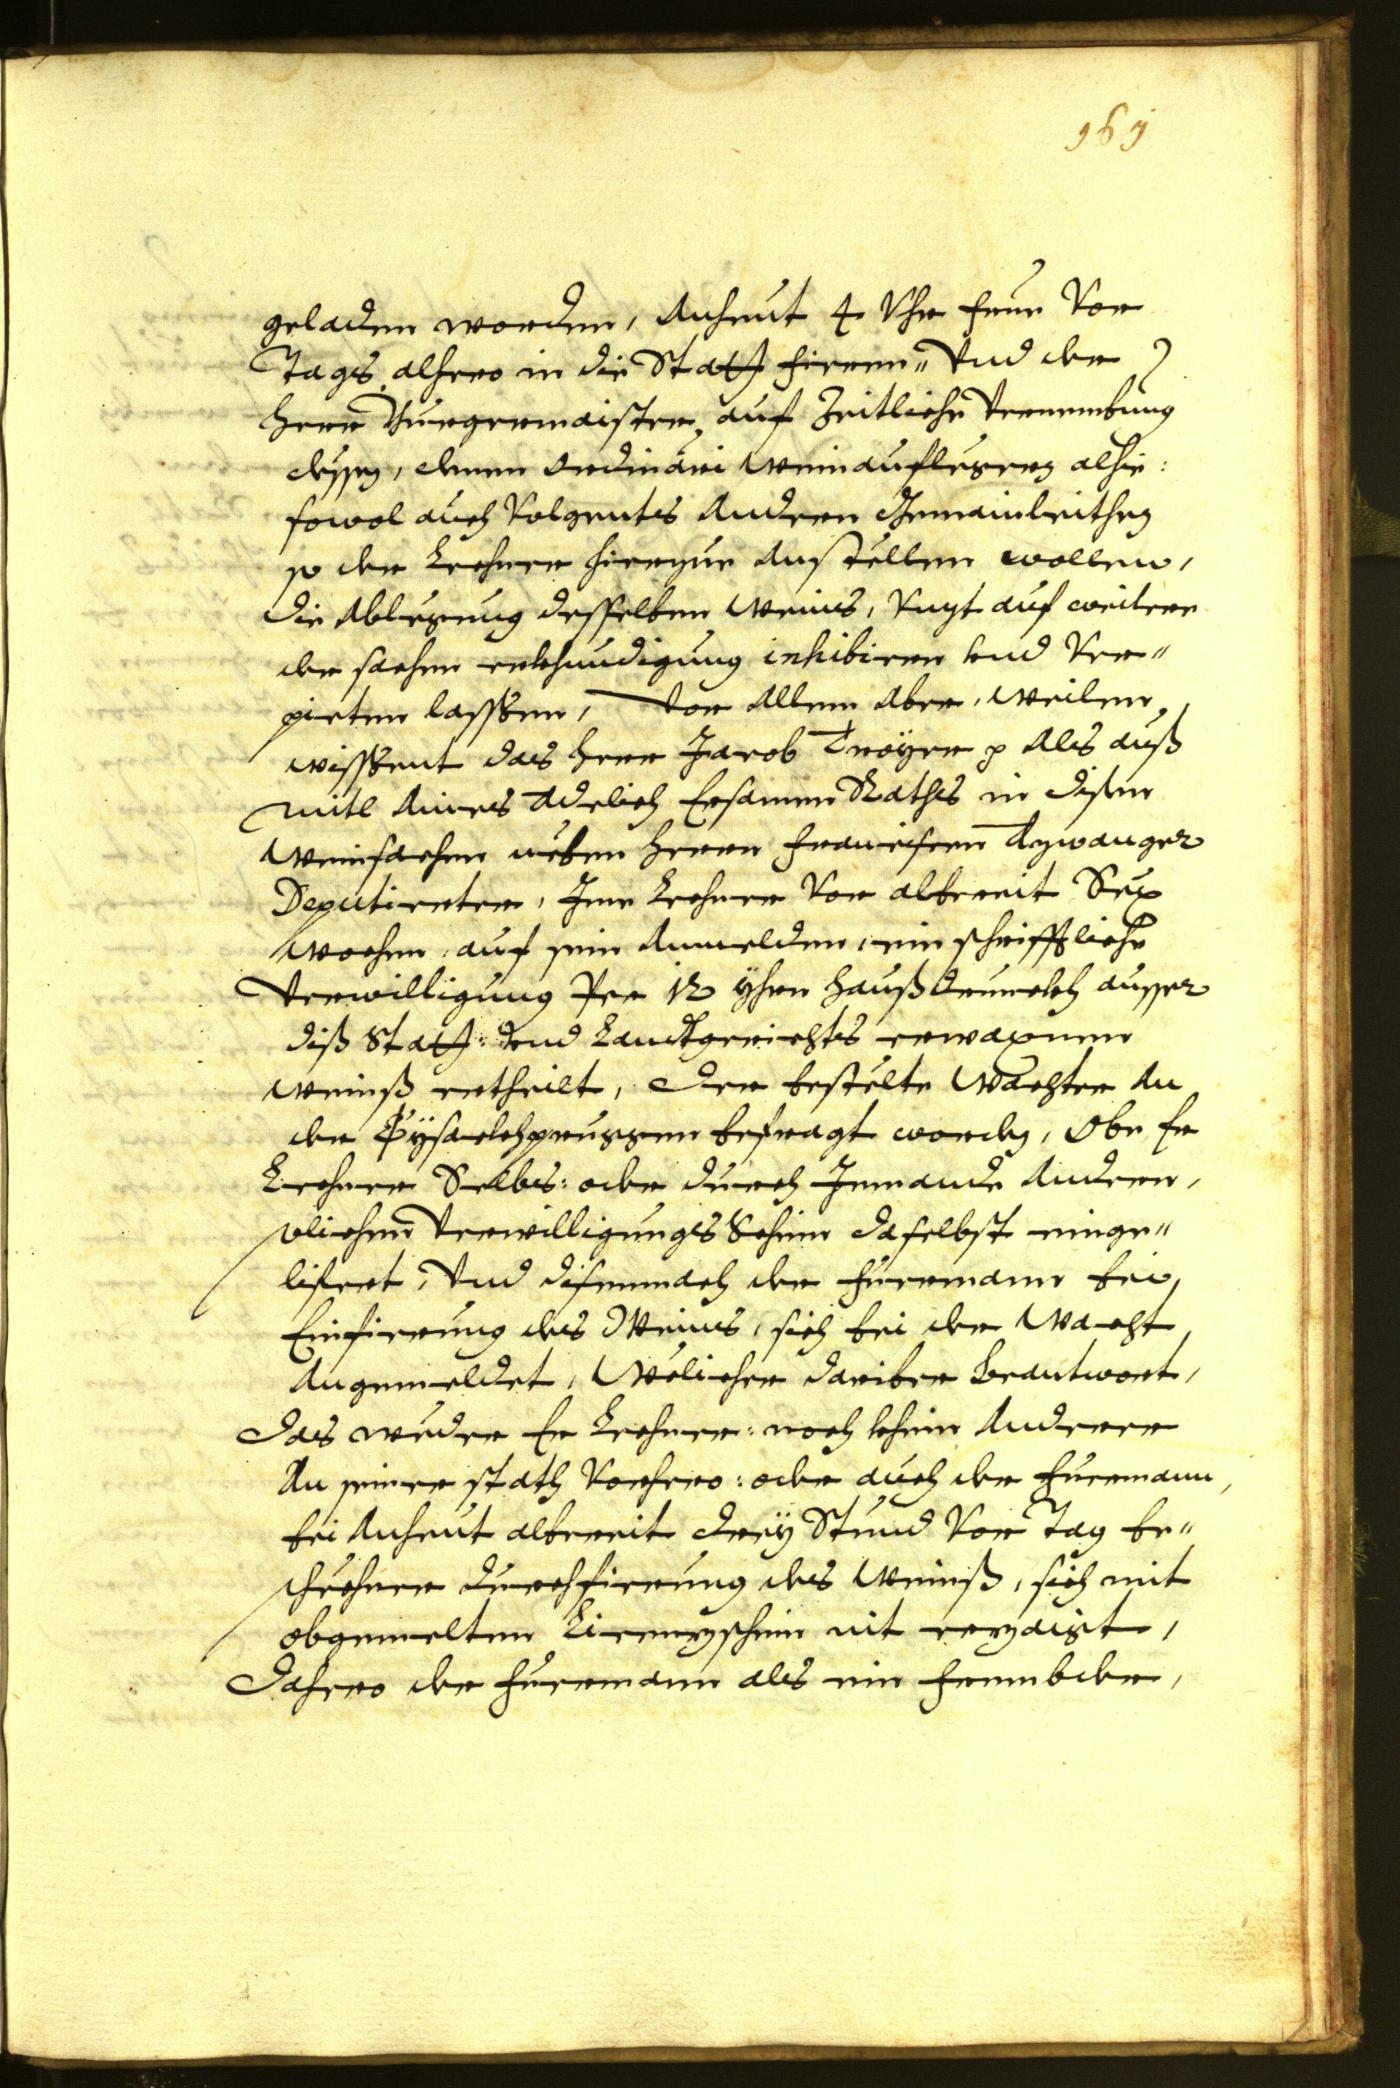 161
geladen worden, Anheut 4 Uhr frue vor
Tags, alhero in die Statt fieren" Und der
Herr Burgermaister, auf Zeitliche Vernembung
dessen, denen Ordinari Weinauflegern alhie:
sowol auch Volgents Andern Gemainleithen
so der Lechner hierzue Anstellen wollen,
die Ablegung desselben Weins, Unzt auf weitere
der sachen erkhundigung inhibiren und Ver"
pieten lasssen, Vor Allem Aber, Weilen
wisssent das Herr Jacob Troyer p Als auß
mitl Aines Adelich Ersamen Raths in disen
Weinsachen neben Herrn Francisen Azwanger
Deputierter, Ime Lechner Vor albereit Sex
Wochen, auf sein Anmelden, ein schrifftliche
Verwilligung Per 12 Yhrn Haußtrunckh ausser
diß Statt: Und Landtgerichts erwaxnen
Weinß ertheilt, Der bestelte Wachter An
der Eysackhpruggen befragt worden, Obe Er
Lechner Selbs: oder durch Jemande Andern,
solichen Verwilligungs Schein daselbst einge"
lifert, Und disemnach der Fuermann bei
Einfierung des Weins, sich bei der Wacht
Angemeldet, Welicher dariber beantwort,
Das weder Er Lechner: noch khein Anderer
An seiner stath Vorhero: oder auch der Fuermann,
bei Anheut albereit drey Stund Vor Tag be"
schechner durchfierung des Weinß, sich mit
obgemelten Licenzschein nit erzaigt,
Dahero der Fuermann als ein frembder,